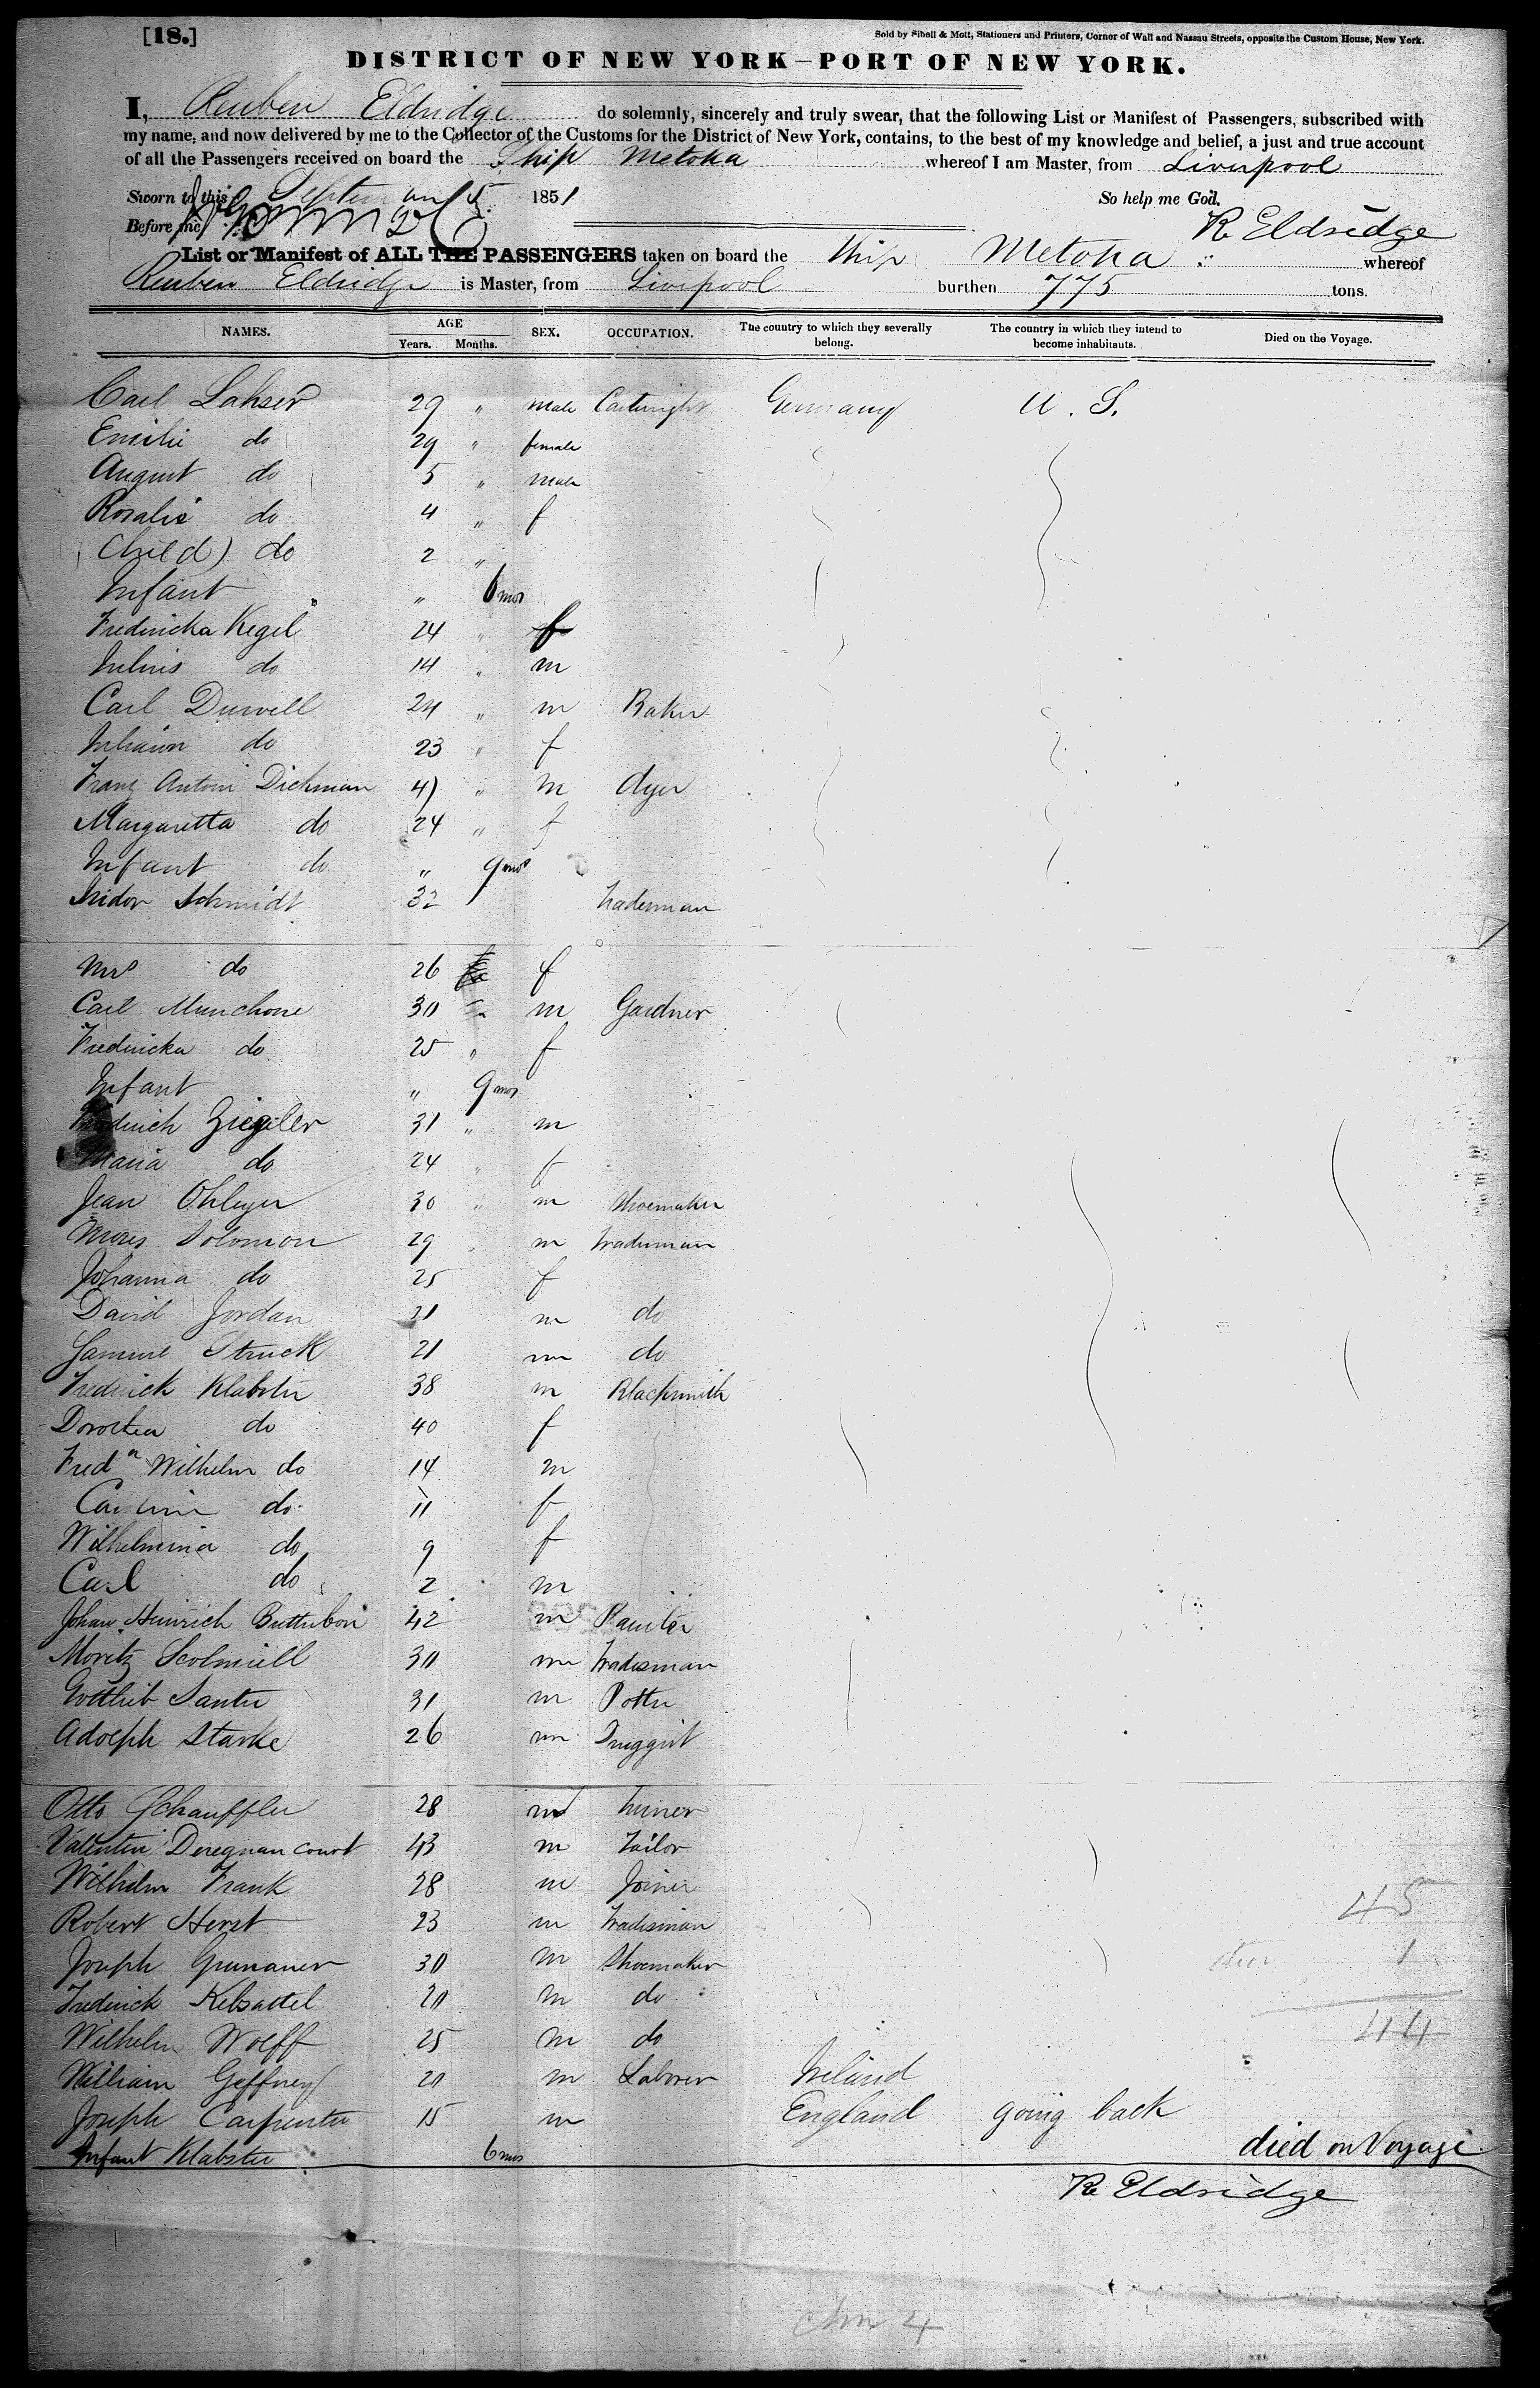 [18.]
Sold by Sibell & Mott, Stationers and Printers, Corner of Wall and Nassau Streets, opposite the Custom House, New York.
DISTRICT OF NEW YORK—PORT OF NEW YORK.
I, Reuben Eldridge do solemnly, sincerely and truly swear, that the following List or Manifest of Passengers, subscribed with
my name, and now delivered by me to the Collector of the Customs for the District of New York, contains, to the best of my knowledge and belief, a just and true account
of all the Passengers received on board the Ship Metoka whereof I am Master, from Liverpool
Sworn to this 5 1851 So help me God.
Before me R Eldridge
List or Manifest of ALL THE PASSENGERS taken on board the Ship Metoka whereof
Reuben Eldridge is Master, from Liverpool burthen 775 tons.
NAMES. AGE Years. Months. SEX. OCCUPATION. The country to which they severally belong. The country in which they intend to become inhabitants. Died on the Voyage.
Carl Lahser 29 " male Cartwright Germany U. S.
Emilie do 29 " female
August do 5 " male
Rosalie do 4 " f
(Child) do 2 "
Infant " 6 mos
Fredericka Kegel 24 " f
Julius do 14 " m
Carl Durvell 24 " m Baker
do 23 " f
Franz Antoni Dichman 41 " m dyer
Margaretta do 24 " f
Infant do " 9 mos
Isidor Schmidt 32 Tradesman
Mrs do 26 f
Carl Munchone 30 " m Gardner
Fredericka do 25 " f
Infant " 9 mos
Frederich Ziegler 31 " m
Maria do 24 " f
Jean Ohleyer 30 " m Shoemaker
Moses Solomon 29 m Tradesman
Johanna do 25 f
David Jordan 21 m do
Samuel Struck 21 m do
Fredrick Klabster 38 m Blacksmith
Dorothea do 40 f
Fred Wilhelm do 14 m
Caroline do 11 f
Wilhelmina do 9 f
Carl do 2 m
Johann Heinrich Butterbon 42 m Painter
Moritz 30 m Tradesman
Gottlieb Santer 31 m Potter
Adolph Starke 26 m Druggist
Otto Schauffler 28 m Turner
Valentin Deregnaucourt 43 m Tailor
Wilhelm Frank 28 m Joiner
Robert Herst 23 m Tradesman 45
Joseph Grunauer 30 m Shoemaker 1
Fredrick Kelsattel 20 m do
Wilhelm Wolff 25 m do 44
William Geffney 20 m Laborer Ireland
Joseph Carpenter 15 m England going back
Infant Klabster 6 mos died on Voyage
R Eldridge
4